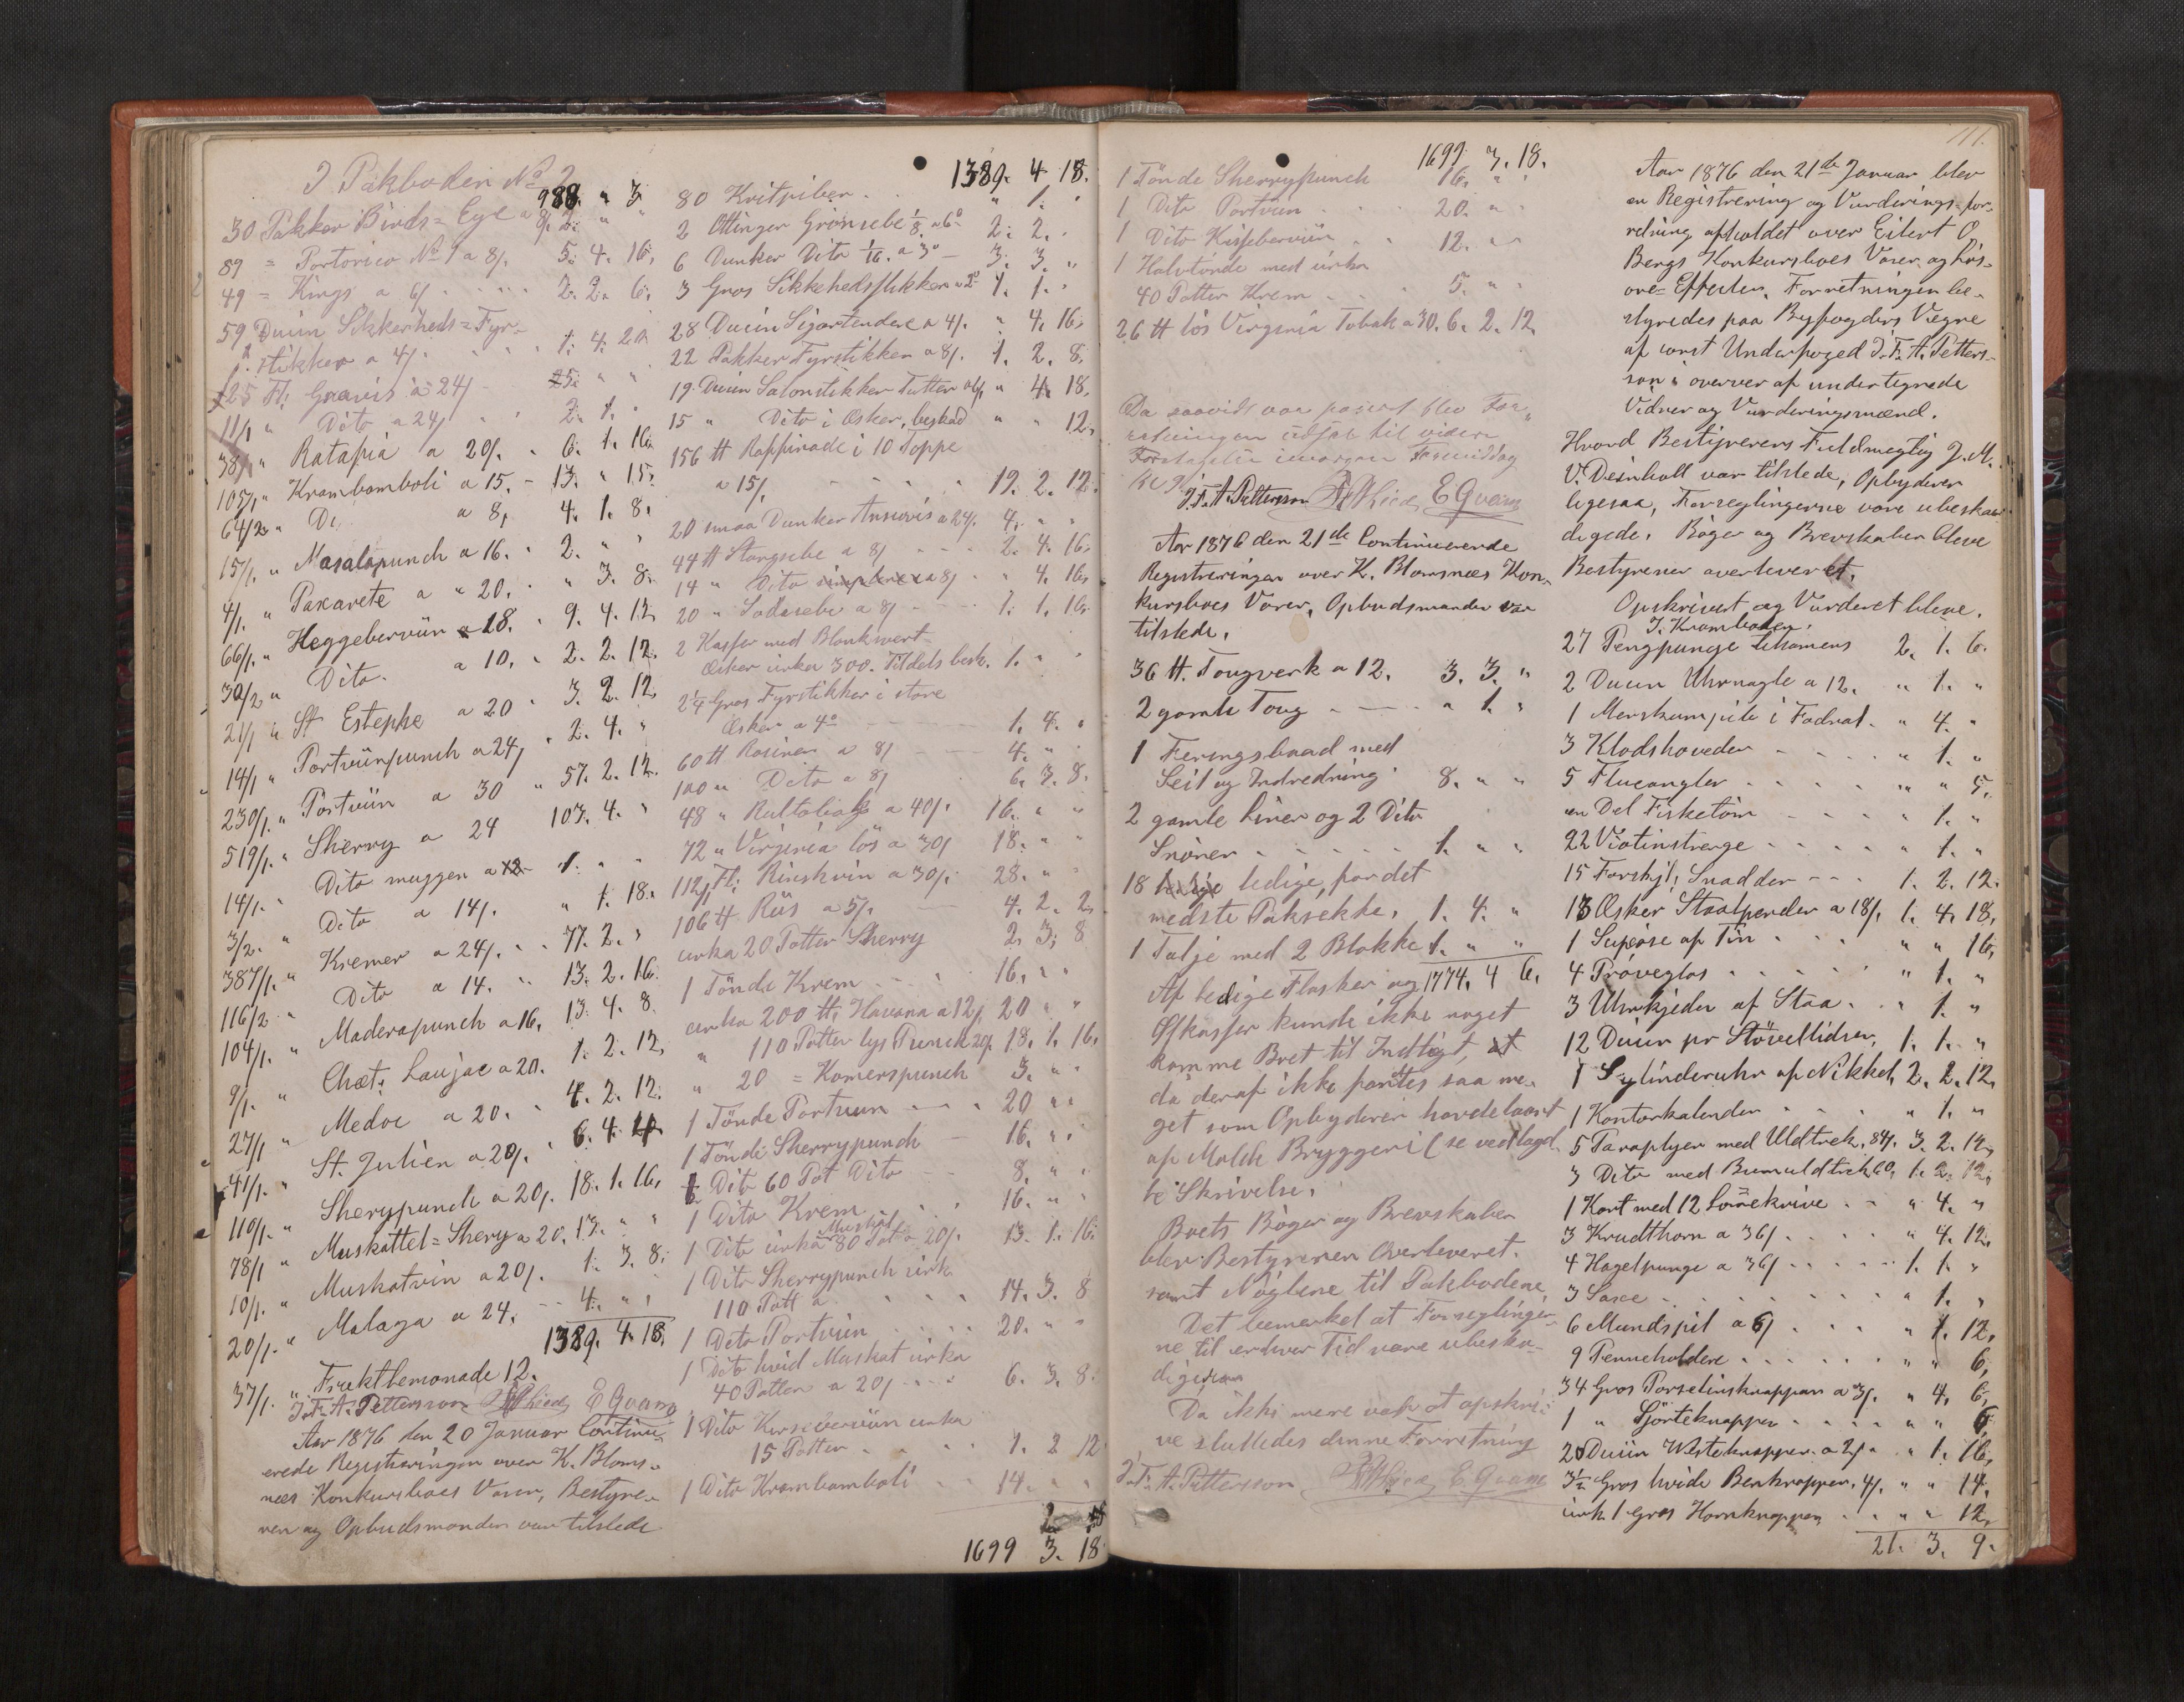 I Pakboden No 2
988. " 3.
30 Pakker Birds=Eye a 8/. 2. " "
89 = Portorico No 1 a 8/. 5. 4. 16.
49 = Kings a 6/. 2. 2. 6.
59 Duin Sikkerheds=Fyr-
stikker a 4/. 1. 4. 20
125 Fl: Graavis a 24/ 25. " "
11/1 " Dito a 24/ 2. 1. "
38/1 " Ratafia a 20/. 6. 1. 16.
105/1 " Krambamboli a 15. - 13. " 15.
64/2 " Do a 8/. 4. 1. 8.
15/1. " Masalapunch a 16. 2. " "
4/1. " Paxarete a " 20. " 3. 8.
66/1. " Heggebærviin a 18. 9. 4. 12.
39/2 " Dito. a 10. 2. 2. 12.
21/1 " St Estephe a 20 3. 2. 12.
14/1 " Portviinpunch a 24/ 2. 4. "
230/1. " Portviin a 30 57. 2. 12.
519/1. " Sherry a 24 103. 4. "
14/1. " Dito muggen a 12 1. " "
3/2. " Dito a 14/. " 1. 18.
387/1. " Kremer a 24/. 77. 2. "
116/2 " Dito a 14. 13. 2. 16.
104/1. " Maderapunch a 16. 13. 4. 8.
9/1. " Chat: Laujac a 20. 1. 2. 12.
27/1 " Medoc a 20. 4. 2. 12.
41/1. " St. Julien a 20/. 6. 4. 4.
110/1. " Sherypunch a 20/. 18. 1. 16.
78/1 " Muskattel=Shery a 20. 13. " "
10/1. " Muskatvin a 20/. 1. 3. 8.
20/1. " Malaga a 24. 4. " "
1389. 4. 18.
37/1. " Fruktlemonade 12.
J. F. A. Pettersson E Qvam
Aar 1876 den 20 Januar Continu-
erede Registreringen over K. Bloms-
næs Konkursboes Varer, Bestyre-
ren og Opbudsmanden var tilstede
1389. 4. 18.
80 Kritpiber " 1. "
2 Ottinger Grønsebe 1/8 a 6o 2. 2. "
6 Dunker Dito 1/16. a 3o 3. 3. "
3 Gros Sikkehedsflikker a 2o 1. 1. "
28 Duin Sigartendere a 4/. " 4. 16.
22 Pakker Fyrstikker a 8/. 1. 2. 8.
19 Duin Salonstikker Futter a 6/. " 4. 18.
15 " Dito i Æsker, beskad " " 12.
156 tt Raffinade i 10 Toppe
a 15/. 19. 2. 12.
20 smaa Dunker Ansiovis a 24/. 4. " "
44 tt Stangsebe a 8/ 2. 4. 16.
14 " Dito a 8/ " 4. 16.
20 " Sodasebe a 8/ 1. 1. 16.
2 Kasser med Blanksvert
Æsker cirka 300. Tildels besk. 1. " "
2 1/4 Gros Fyrstikker i store
Æsker a 4o 1. 4. "
60 tt Rosiner a 8/ 4. " "
100 " Dito a 8/ 6. 3. 8.
48 " Rultobak a 40/. 16. " "
72 " Virginia løs a 30/ 18. "
112/1 Fl: Rinskvin a 30/. 28. " "
106 tt Riis a 5/. 4. 2. 2.
cirka 20 Potter Sherry 2. 3. 8
1 Tønde Krem 16. " "
cirka 200 tt: Havana a 12/ 20 " "
" 110 Potter lys Punch 20/. 18. 1. 16.
" 20 = Komerspunch 3. " "
1 Tønde Portviin 20 " "
1 Tønde Sherrypunch 16. " "
1 Dito 60 Pot Dito 8. " "
1 Dito Krem 16. " "
1 Dito cirka Muskat 80 Pot a 20/. 13. 1. 16.
1 Dito Sherrypunch cirk
110 Pott a 14. 3. 8
1 Dito Portviin 20. " "
1 Dito hvid Muskat cirka
40 Potter a 20/ 6. 3. 8.
1 Dito Kirsebærviin cirka
15 Potter 1. 2 12
1 Dito Krambamboli 14. " "
1699 3. 18
1699 3. 18.
1 Tønde Sherrypunch 16. " "
1 Dito Portviin 20. " "
1 Dito Kirsebærviin 12. " "
1 Halvtønde med cirka
40 Potter Krem 5. " "
26 tt løs Virginia Tobak a 30. 6. 2. 12.
Da saavidt var passert blev For-
retningen udsat til videre
Foretagelse imorgen Formiddag
Kl 9.
J. F. A. Pettersson E Qvam
Aar 1876 den 21de Continuerende
Registreringen over K. Blomsnæs Kon-
kursboes Varer, Opbudsmanden var
tilstede.
36 tt. Tougverk a 12. 3. 3. "
2 gamle Toug " 1. "
1 Feringsbaad med
Seil og Indredning 8. " "
2 gamle Liner og 2 Dito
Snører 1. " "
18 ledige, for det
medste Paksekke, 1. 4. "
1 Talje med 2 Blokke 1. " "
1774. 4 6.
Af ledige Flasker og
Ølkasser kunde ikke noget
komme Boet til Indtægt, at
da deraf ikke fantes saa me-
get som Opbyderen havde laant
af Molde Bryggeri (se vedlagd-
te Skrivelse.
Boets Bøger og Brevskaber
blev Bestyreren Overleveret.
samt Nøglene til Pakbodene
Det bemærket at Forseglinger-
ne til enhver Tid vare ubeska-
digede
Da ikke mere var at opskri-
ve sluttedes denne Forretning
J. F. A. Pettersson E. Qvam
111.
Aar 1876 den 21de Januar blev
en Registrering og Vurderings-for-
retning afholdet over Eilert O.
Bergs Konkursboes Varer og Løs-
øre=Effecter. Forretningen be-
styredes paa Byfogdens Vegne
af const Underfoged J. F. A. Petters-
son i overver af undertegnede
Vidner og Vurderingsmænd.
Hvorved Bestyrerens Fuldmegtig J. M.
V. Deinboll var tilstede, Opbyderen
ligesaa, Forseglingerne vare ubeska-
digede. Bøger og Brevskaber bleve
Bestyreren overleveret.
Opskrivert og Vurderet bleve.
I. Kramboden.
27 Pengpunge tilsamens 2. 1. 6.
2 Duin Uhrnøgle a 12. " 1. "
1 Merskumpibe i Fodral. " 4. "
3 Klodshoveder " 1. "
5 Flueangler " " 5.
en Del Fisketøm " 1. "
22 Violinstrenge " 1. "
15 Forskjl: Snadder 1. 2. 12.
13 Æsker Staalpender a 18/. 1. 4. 18.
1 Supeøse af Tin " " 16.
4 Prøveglas " 1. "
3 Uhrkjeder af Staa " 1. "
12 Duin pr Støvletidser. 1. 1. "
1 Sylinderuhr af Nikkel, 2. 2. 12.
1 Kontorkalender " 1. "
5 Paraplyer med Uldtrek. 84/. 3. 2. 12.
3 Dito med Bumuldtrek 60. 1. 2. 12.
1 Kart med 12 Lommeknive " 4. "
3 Krudthorn a 36/ " 4. 12.
4 Hagelpunge a 36/ 1. 1. "
3 Saxe " 1. "
6 Mundspit a 6/ " 1. 12.
9 Penneholdere " " 6.
34 Gros Porselinsknapper a 3/. " 4. 6.
1 " Sjorteknapper " " 6
20 Duiin Westeknapper a 2/. " 1. 16.
3 1/2 Gros hvide Benknapper. 4/. " " 14.
cirk. 1 Gros Hornknapper " " 12.
21. 3. 9.